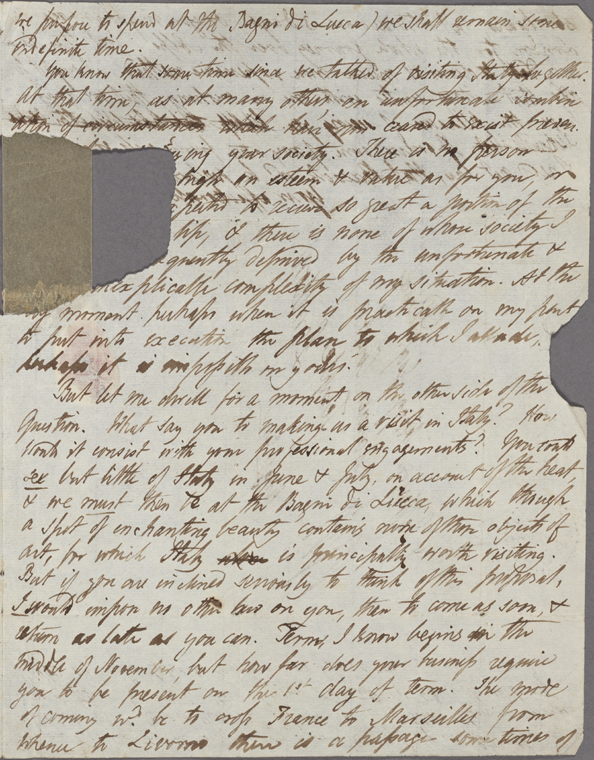 we propose to spend at the Bagni di Lucca) we shall remain some
indefinite time.
You know that some time since we talked of visiting Italy together.
At that time, as at many other an unfortunate combin
ation of circumstances
enjoying your society. There is no person
high an esteem & value as for you, or
to accuse so great a portion of the
& there is none of whose society I
equently deprived by the unfortunate &
inexplicable complexity of my situation. At the
moment perhaps when it is practicable on my part
to put into execution the plan to which I allude,
perhaps it is impossible on yours.
But let me dwell for a moment on the other side of the
question. What say you to making us a visit in Italy? How
would it consist with your professional engagements? You could
see but little of Italy in June & July, on account of the heat,
& we must then be at the Bagni di Lucca, which though
a spot of enchanting beauty contains none of those objects of
art, for which Italy is principally worth visiting.
But if you are inclined seriously to think of this proposal,
I would impose no other law on you, than to come as soon, &
return as late as you can. Term, I know begins in the
middle of November, but how far does your business require
you to be present on the 1st day of term. The mode
of coming wd. be to cross France to Marseilles from
whence to Livorno there is a passage sometimes of